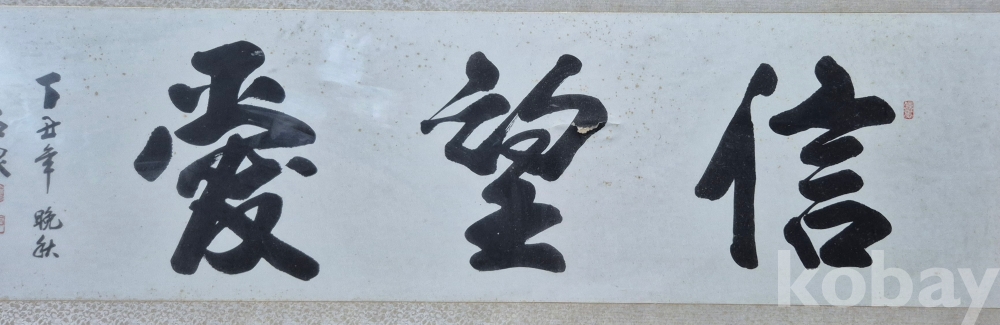 信望愛
丁丑年 晩秋
kobay